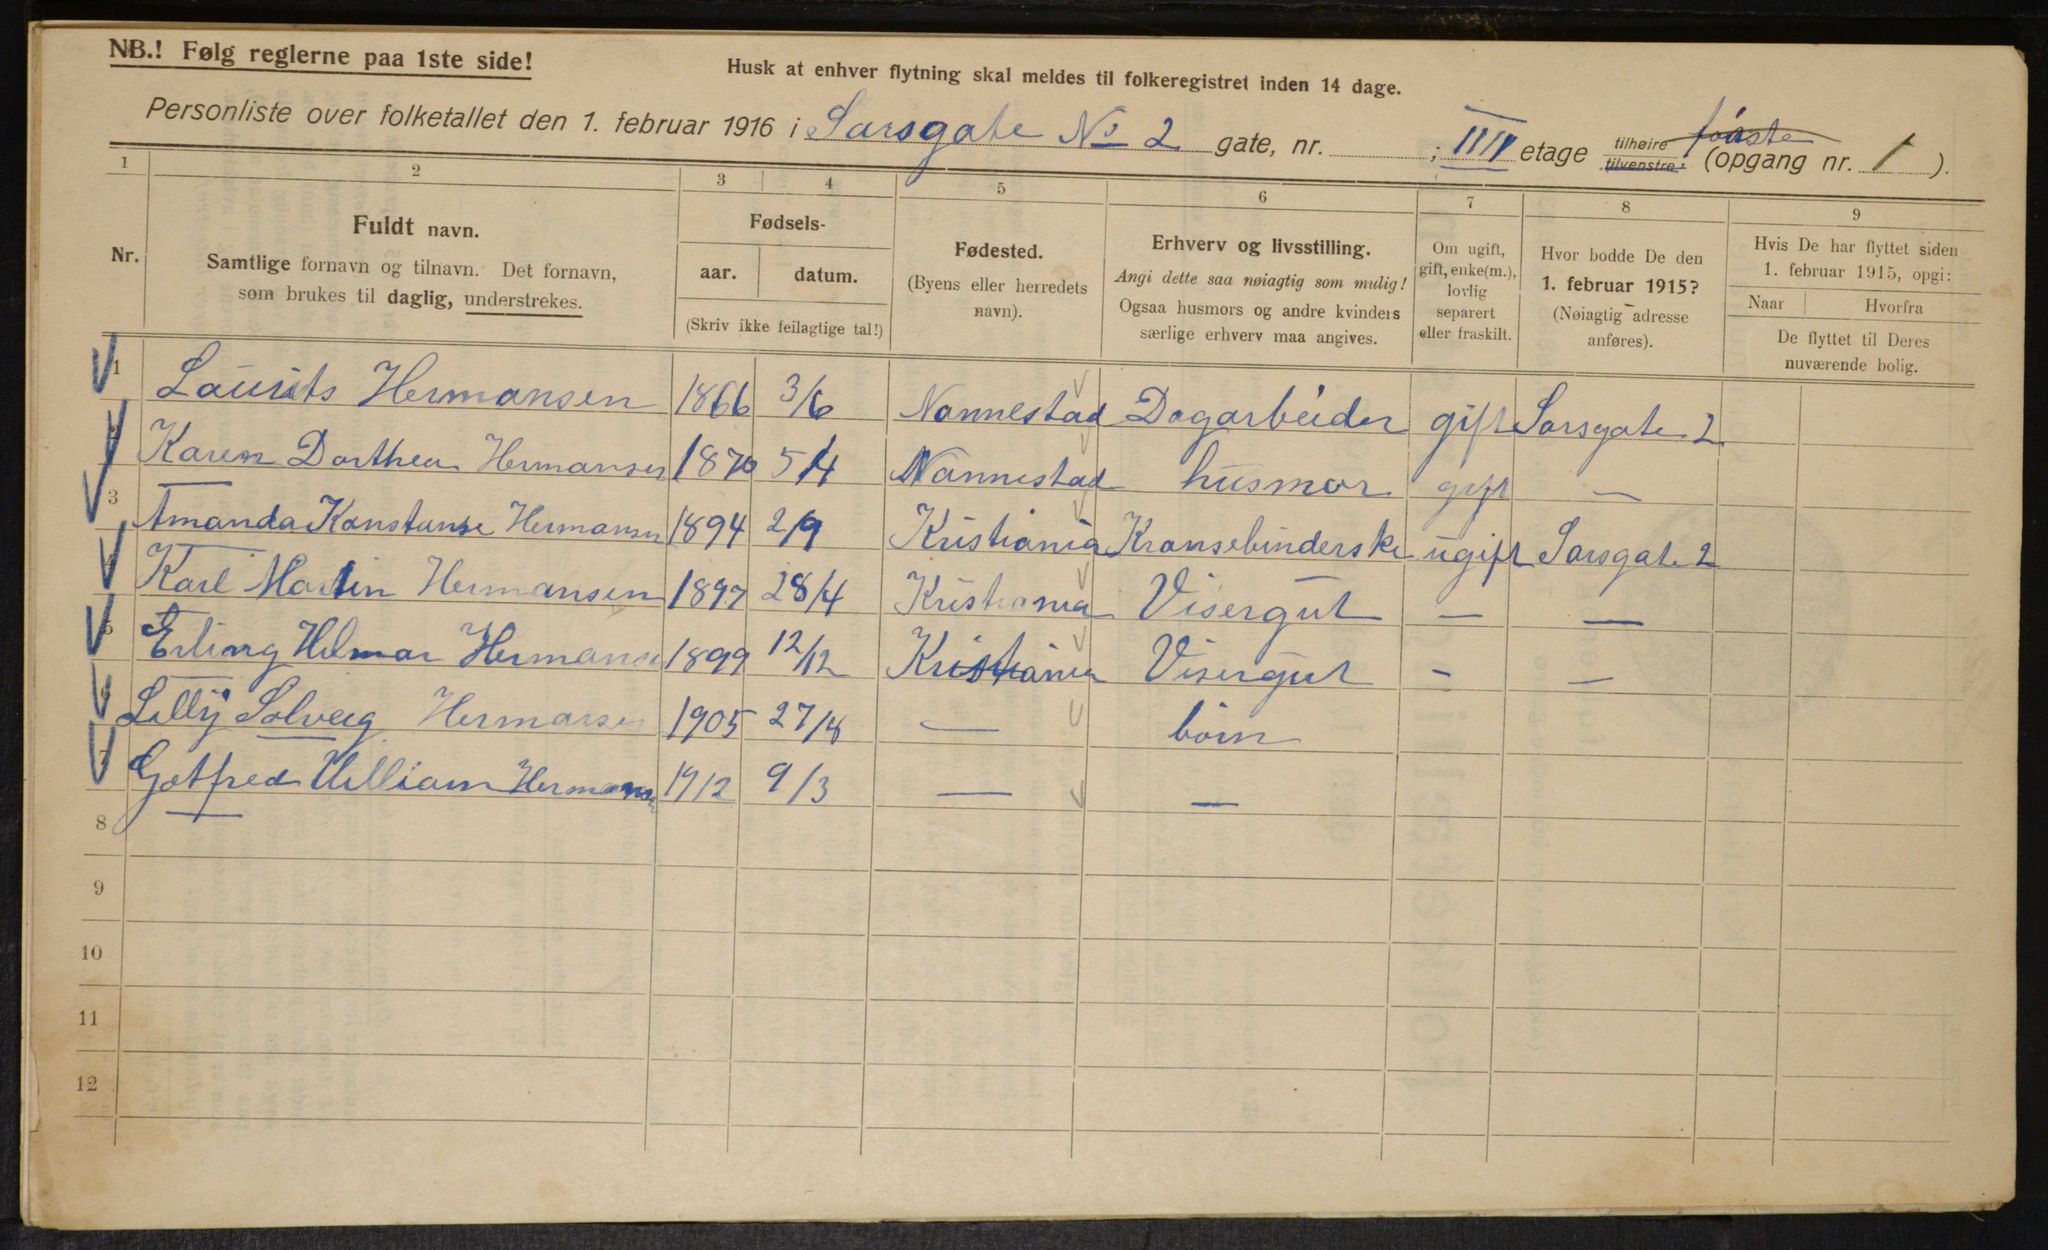 NB.! Følg reglerne paa 1ste side!
Husk at enhver flytning skal meldes til folkeregistret inden 14 dage.
Personliste over folketallet den 1. februar 1916 i Sarsgate No 2 gate, nr. ; III etage tilhøire tilvenstre første (opgang nr. 1 ).
1 2 3 4 5 6 7 8 9
Nr.
Fuldt navn.
Samtlige fornavn og tilnavn. Det fornavn,
som brukes til daglig, understrekes.
Fødsels-
aar. datum.
(Skriv ikke feilagtige tal!)
Fødested.
(Byens eller herredets
navn).
Erhverv og livsstilling.
Angi dette saa nøiagtig som mulig!
Ogsaa husmors og andre kvinders
særlige erhverv maa angives.
Om ugift,
gift, enke(m.),
lovlig
separert
eller fraskilt.
Hvor bodde De den
1. februar 1915?
(Nøiagtig adresse
anføres).
Hvis De har flyttet siden
1. februar 1915, opgi:
Naar Hvorfra
De flyttet til Deres
nuværende bolig.
1 Laurits Hermansen 1866 3/6 Nannestad Dagarbeider gift Sarsgate 2
Karen Dorthea Hermansen 1870 5/4 Nannestad husmor gift —
3 Amanda Konstanse Hermansen 1894 2/9 Kristiania Kransebinderske ugift Sarsgate 2
Karl Martin Hermansen 1897 28/4 Kristiania Visergut — —
5 Erling Hilmar Hermansen 1899 12/12 Kristiania Visergut - —
6 Lilly Solveig Hermansen 1905 27/8 — barn
7 Gotfred William Hermansen 1912 9/3 — —
8
9
10
11
12